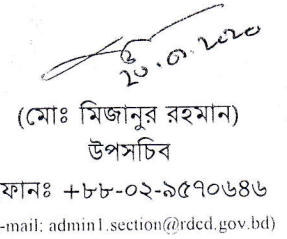 ২০.০১.২০২০
(মোঃ মিজানুর রহমান)
উপসচিব
ফোনঃ +৮৮-০২-৯৫৭০৬৪৬
-mail: admin1.section@rdcd.gov.bd)